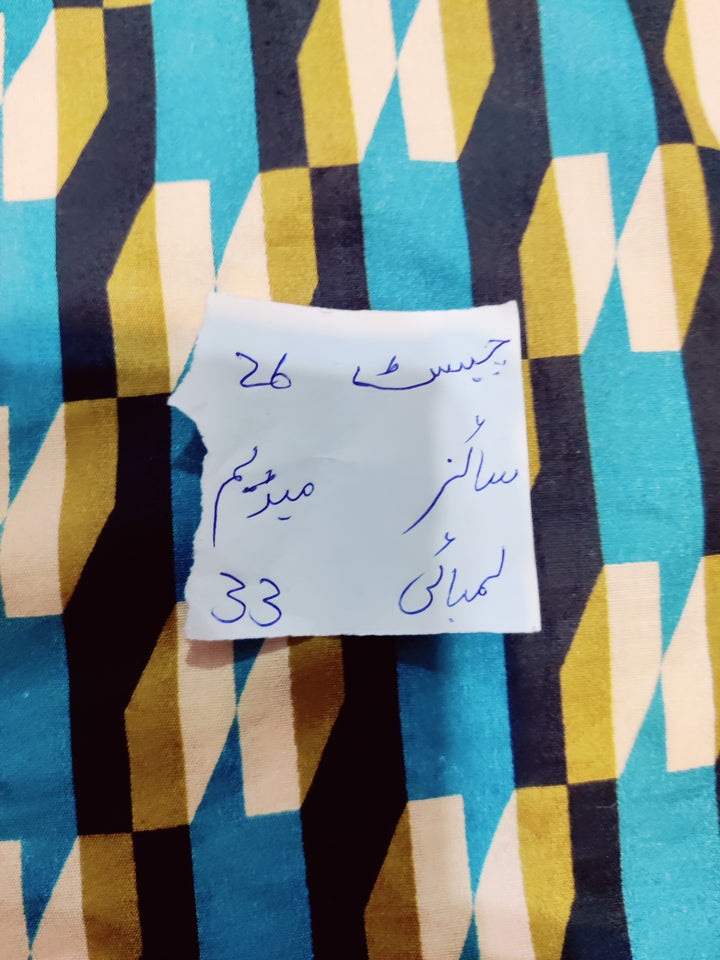 چیسٹ 26
سائز میڈیم
لمبائی 33